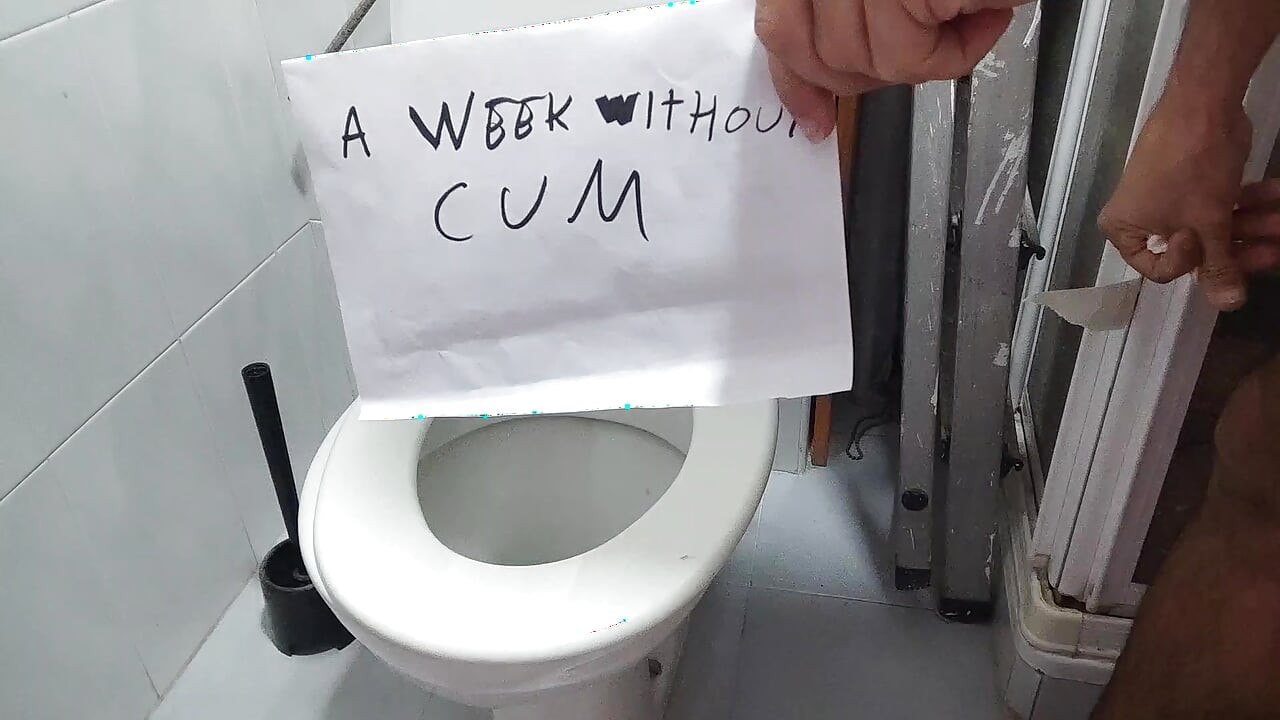 A WEEK WITHOUT
CUM